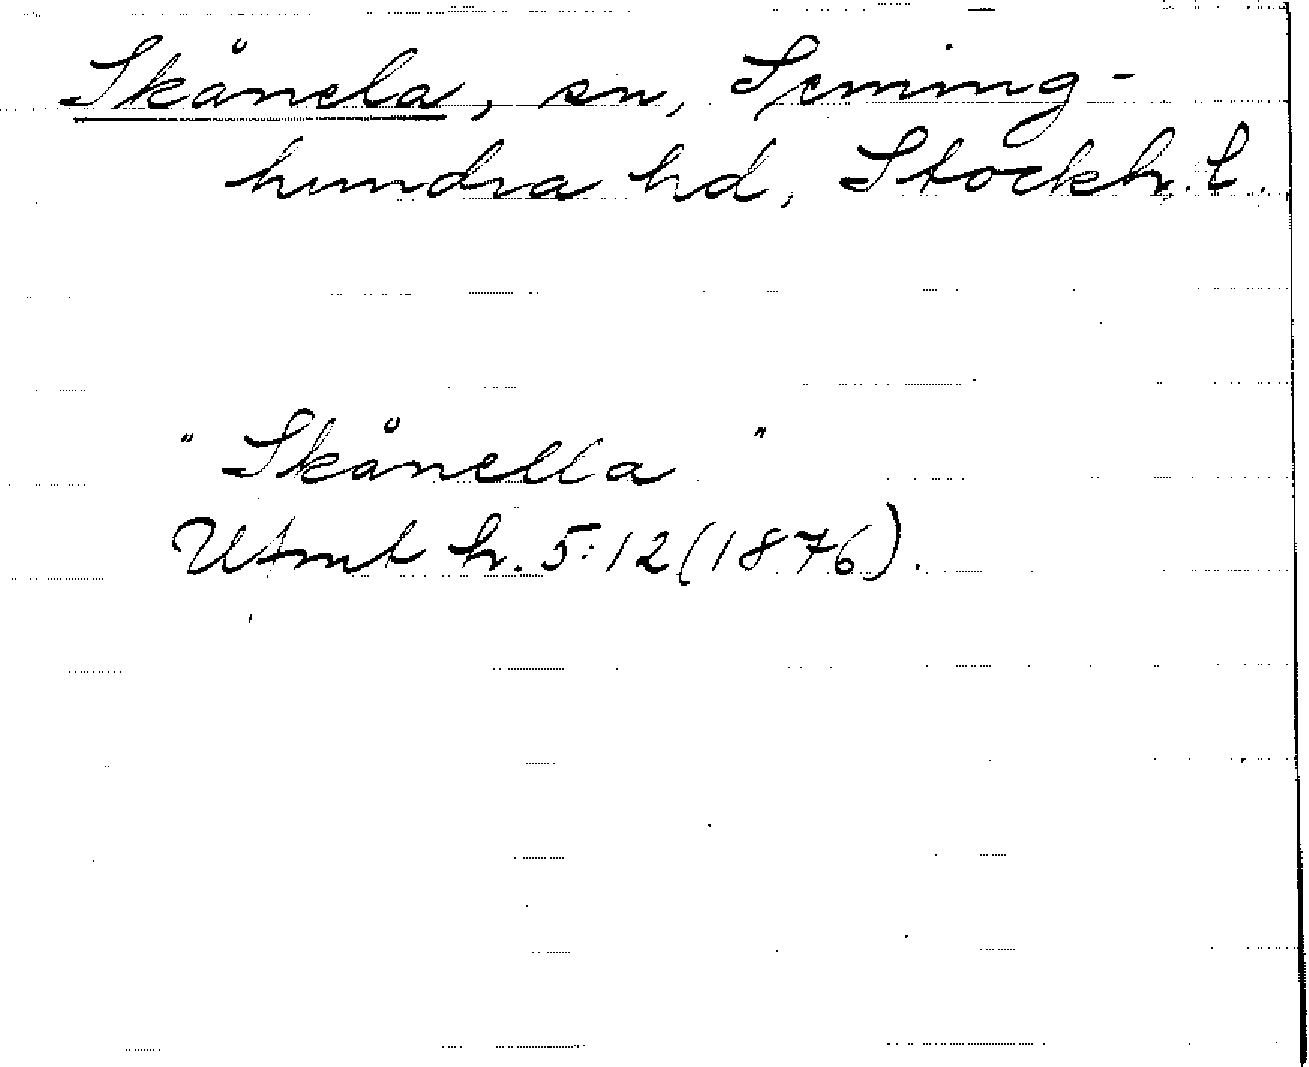 Skånela, sn, Seming-
hundra hd, Stockh. l.
"Skånella"
Utmt h. 5:12 (1876).